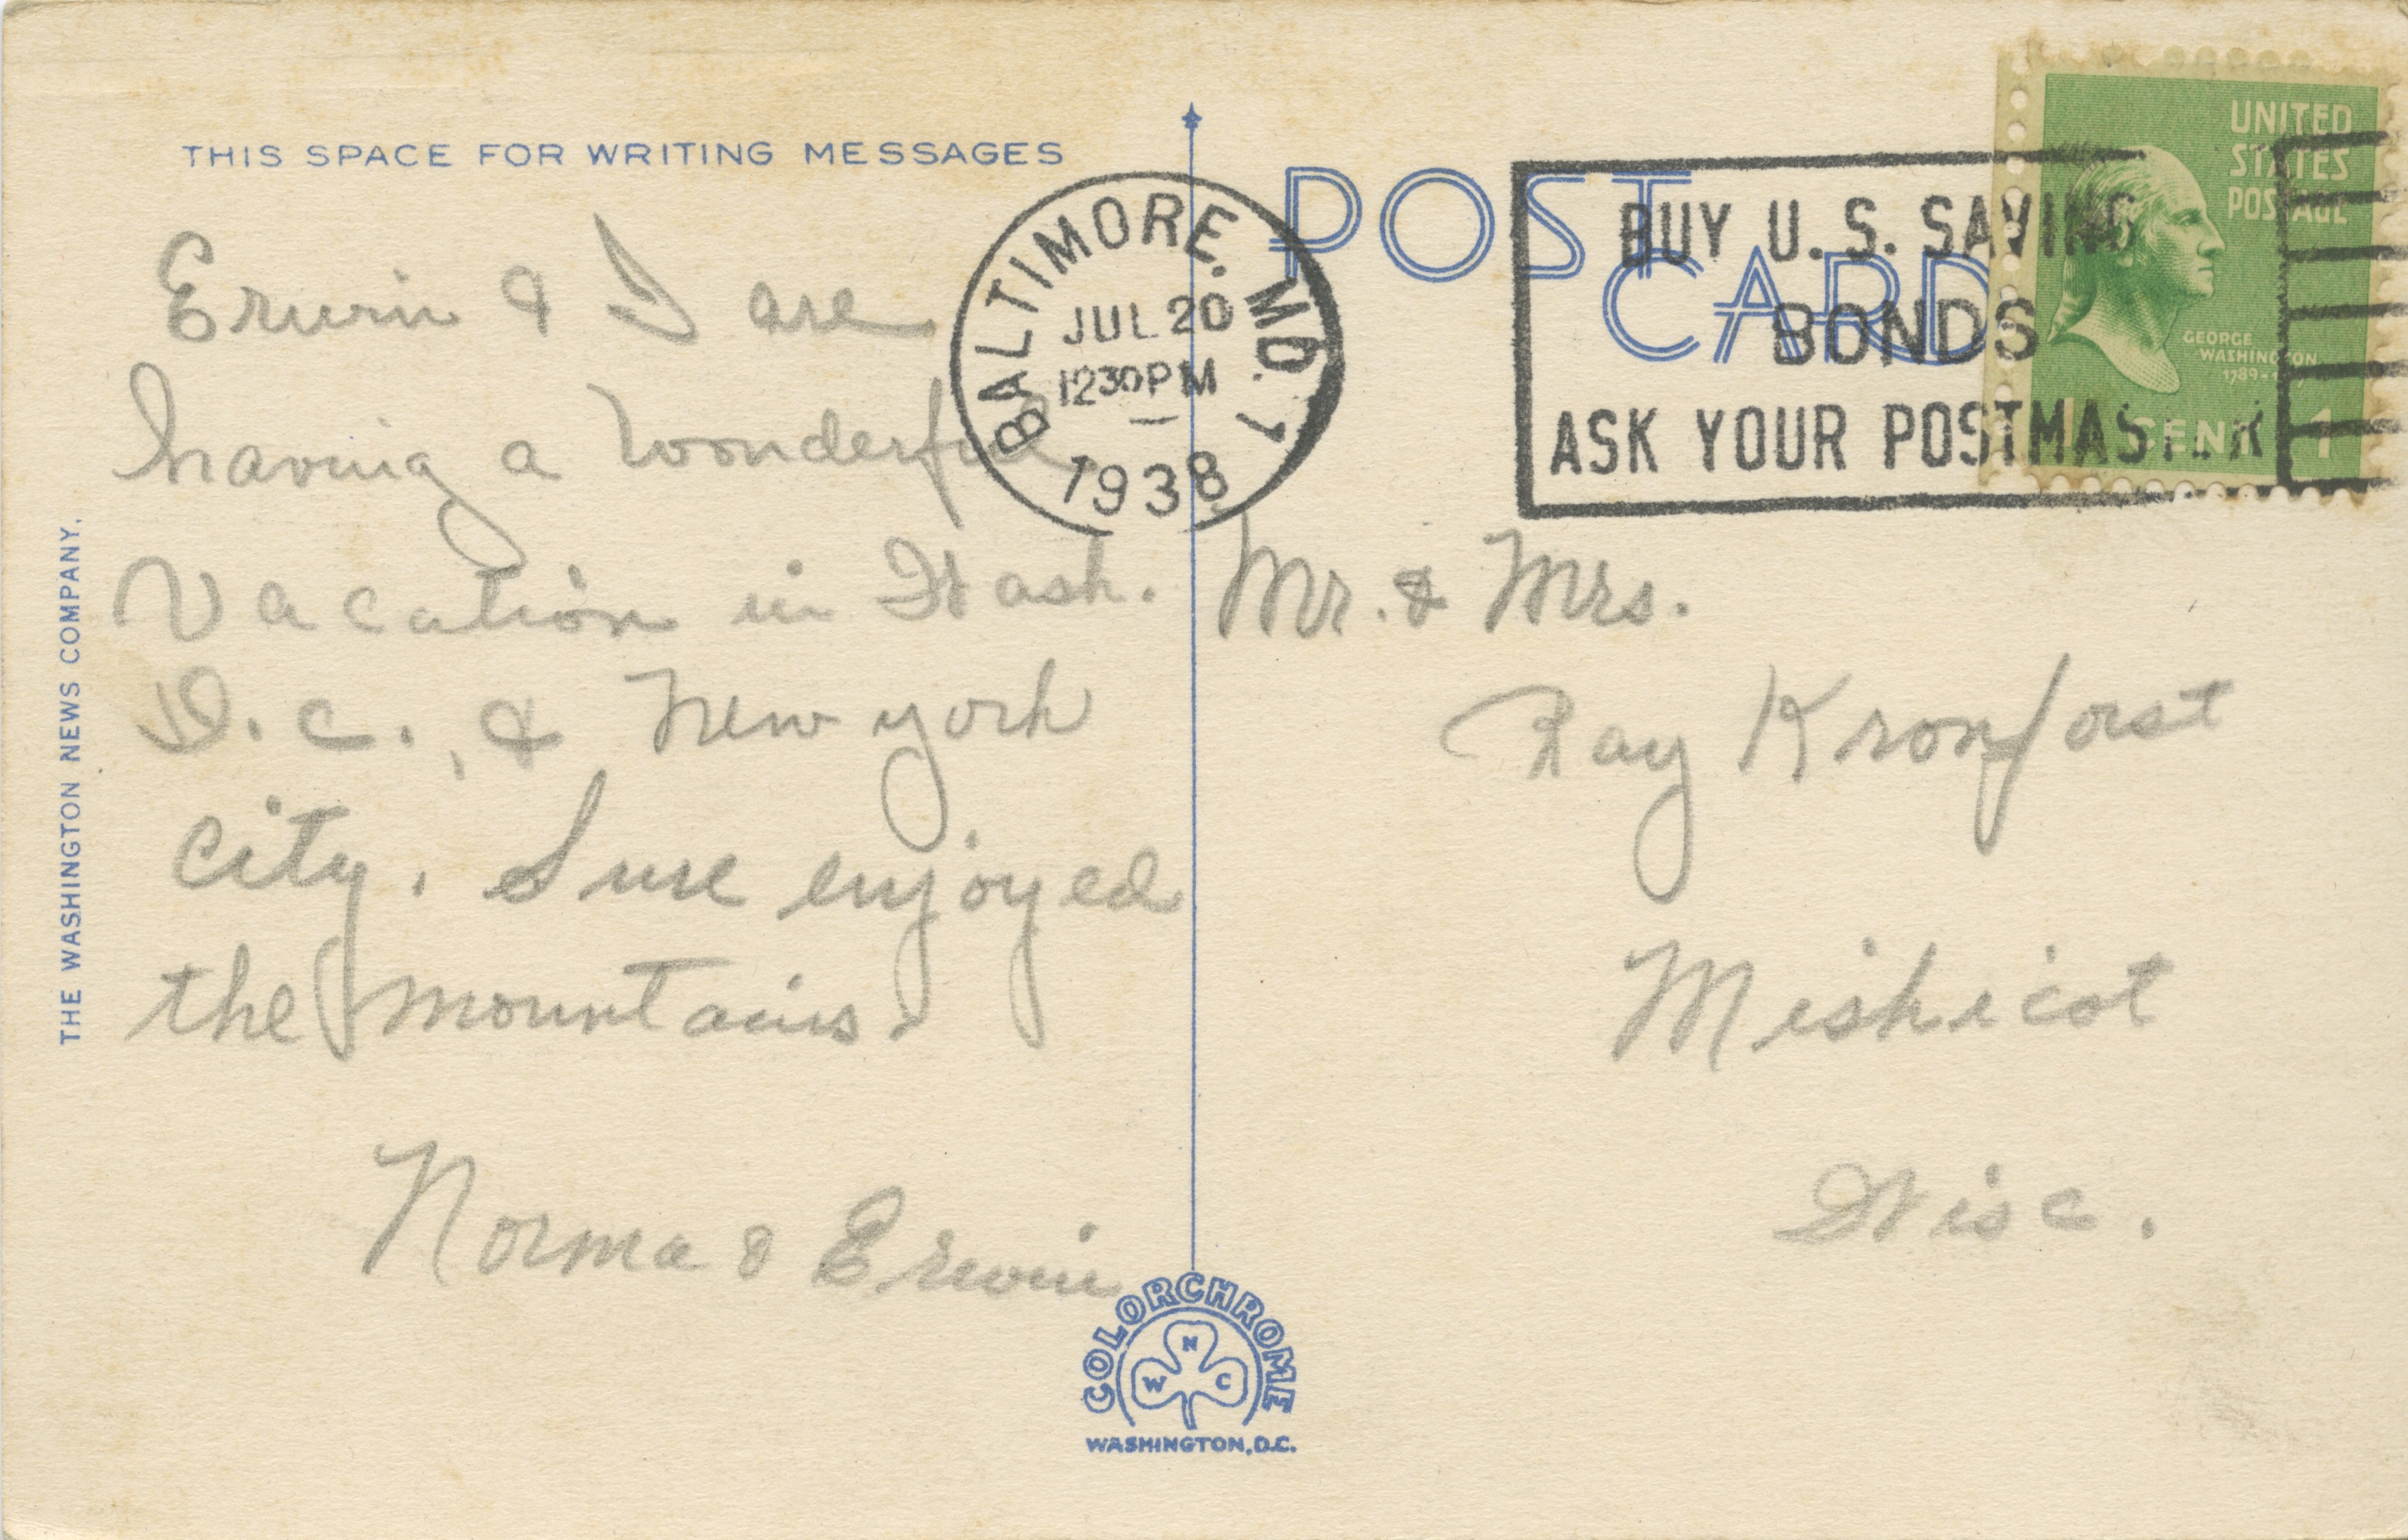 THIS SPACE FOR WRITING MESSAGES
Erwin & I are
having a wonderful
Vacation in Wash.
D.C., & New york
City. Sure enjoyed
the mountains.
Norma & Erwin
THE WASHINGTON NEWS COMPANY.
BALTIMORE, MD. 1
JUL 20
1230PM
1938
POST
CARD
BUY U. S. SAVING
BONDS
ASK YOUR POSTMASTER
UNITED
STATES
POSTAGE
GEORGE
WASHINGTON
1 CENT 1
Mr. & Mrs.
Ray Kronforst
Mishicot
Wisc.
COLORCHROME
N
W C
WASHINGTON, D.C.